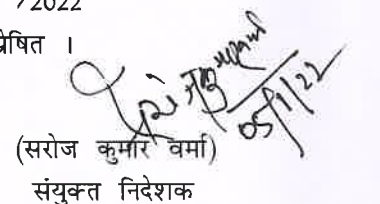 /2022
प्रेषित ।
05/1/22
(सरोज कुमार वर्मा)
संयुक्त निदेशक